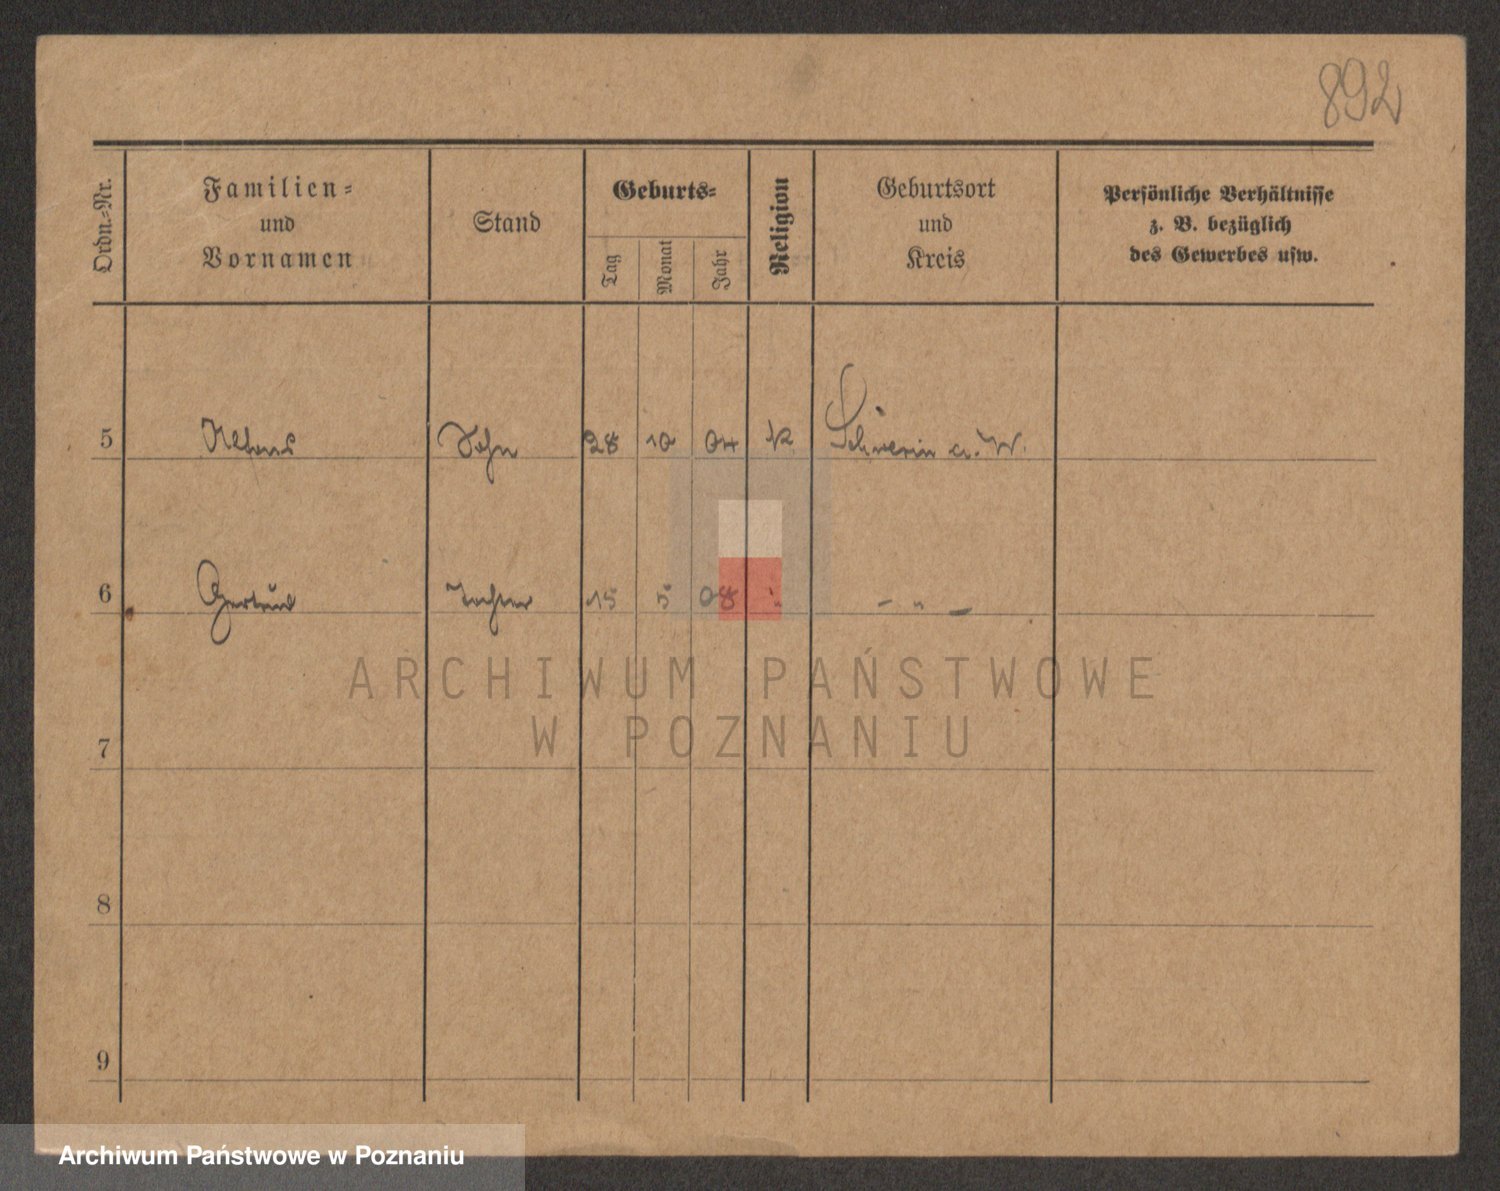 892
Ordn.-Nr.
Familien-
und
Vornamen
Stand
Geburts-
Tag
Monat
Jahr
Religion
Geburtsort
und
Kreis
Persönliche Verhältnisse
z. B. bezüglich
des Gewerbes usw.
5 Alfons Sohn 28 10 04 k. Schwerin a. W.
6 Gertrud Tochter 15 5 08 " - " -
7
8
9
ARCHIWUM PAŃSTWOWE
W POZNANIU
Archiwum Państwowe w Poznaniu